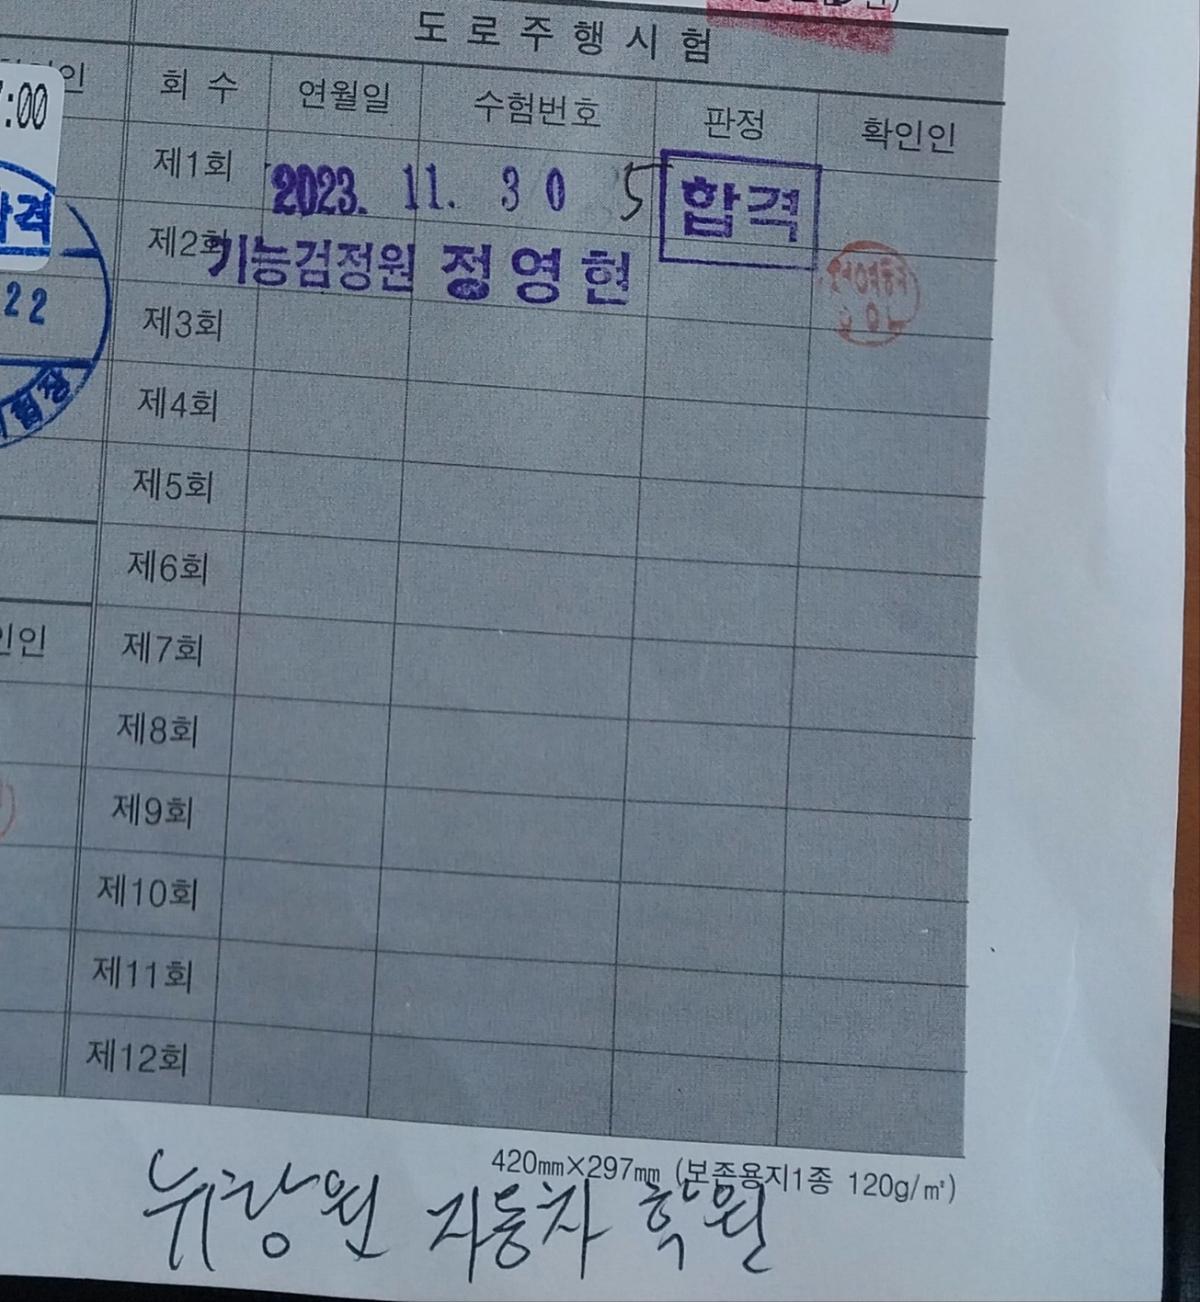 도로주행시험
인 회 수 연월일 수험번호 판정 확인인
:00
제1회 2023. 11. 30 5 합격
격
제2회
기능검정원 정영현
22
제3회
제4회
제5회
제6회
인인 제7회
제8회
제9회
제10회
제11회
제12회
420㎜×297㎜ (보존용지1종 120g/㎡)
뉴강원 자동차 학원